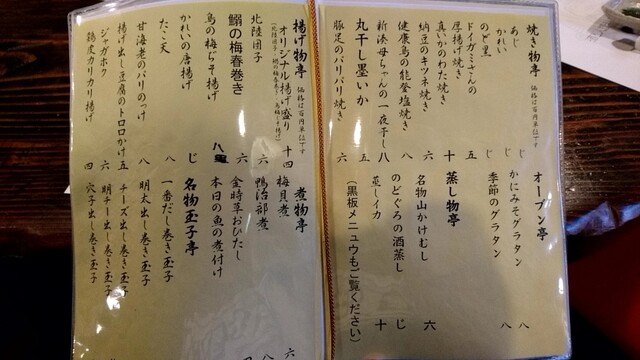 焼き物亭 価格は百円単位です
あじ じ
かれい じ
のど黒 じ
ドイガミさんの
厚揚げ焼き 五
真いかのわた焼き 十
納豆のキツネ焼き 六
健康鳥の能登塩焼き 八
新湊母ちゃんの一夜干し 八
丸干し墨いか 五
豚足のパリパリ焼き 六
オーブン亭
かにみそグラタン 八
季節のグラタン 八
蒸し物亭
名物山かけむし 六
のどぐろの酒蒸し じ
蒸しイカ 十
(黒板メニュウもご覧ください)
揚げ物亭 価格は百円単位です
オリジナル揚げ盛り 十四
北陸団子 六
鰯の梅春巻き 六
鳥の梅じそ揚げ 八
かれいの唐揚げ じ
たこ天 八
甘海老のパリのっけ 八
揚げ出し豆腐のトロロかけ 五
ジャガホク 六
鶏皮カリカリ揚げ 四
煮物亭
梅貝煮 六
鴨治部煮 八
金時草おひたし
本日の魚の煮付け
名物玉子亭
一番だし巻き玉子
明太出し巻き玉子
チーズ出し巻き玉子
明チー出し巻き玉子
穴子出し巻き玉子